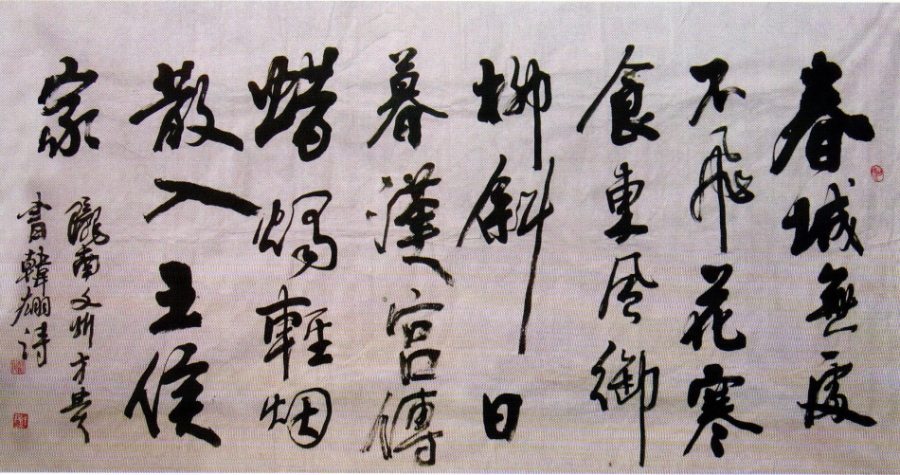 春城無處
不飛花寒
食東風御
柳斜日
暮漢宮傳
蜡燭輕烟
散入五侯
家
隴南文州方
書韓翃詩